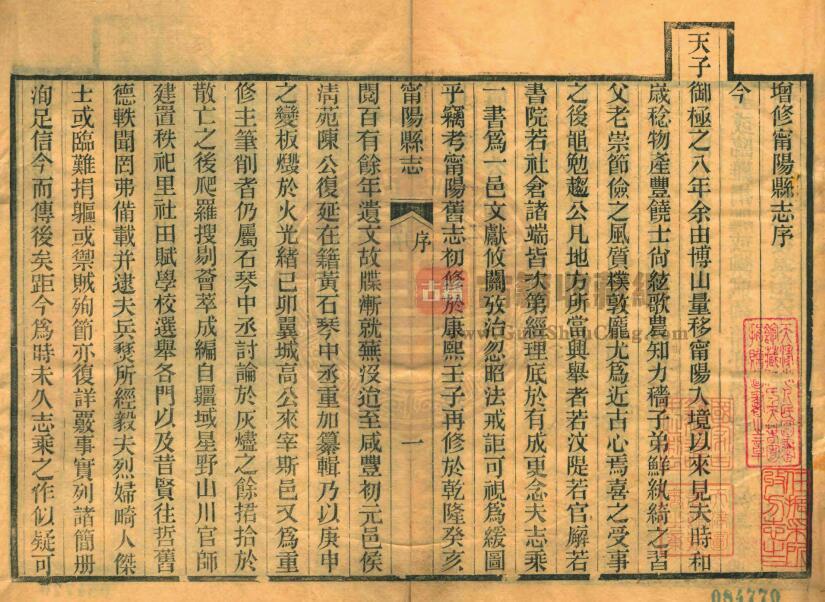 增修甯陽縣志序
今
天子御極之八年余由博山量移甯陽入境以來見夫時和
歲稔物產豐饒士尚絃歌農知力穡子弟鮮紈綺之習
父老崇節儉之風質樸敦龐尤爲近古心焉喜之受事
之後黽勉趨公凡地方所當興舉者若汶隄若官廨若
書院若社倉諸端皆次第經理底於有成更念夫志乘
一書爲一邑文獻攸關攷治忽昭法戒詎可視爲緩圖
乎竊考甯陽舊志初修於康熙壬子再修於乾隆癸亥
甯陽縣志
序
一
閱百有餘年遺文故牒漸就蕪沒迨至咸豐初元邑侯
清苑陳公復延在籍黃石琴中丞重加纂輯乃以庚申
之變板燬於火光緒己卯翼城高公來宰斯邑又爲重
修主筆削者仍屬石琴中丞討論於灰燼之餘捃拾於
散亡之後爬羅搜剔薈萃成編自疆域星野山川官師
建置秩祀里社田賦學校選舉各門以及昔賢往哲舊
德軼聞罔弗備載并逮夫兵燹所經毅夫烈婦畸人傑
士或臨難捐軀或禦賊殉節亦復詳覈事實列諸簡冊
洵足信今而傳後矣距今爲時未久志乘之作似疑可
084770